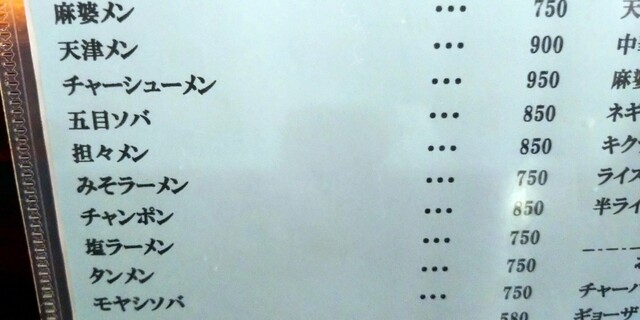 麻婆メン ・・・ 750
天津メン ・・・ 900
チャーシューメン ・・・ 950
五目ソバ ・・・ 850
担々メン ・・・ 850
みそラーメン ・・・ 750
チャンポン ・・・ 850
塩ラーメン ・・・ 750
タンメン ・・・ 750
モヤシソバ ・・・ 750
580
天
中
麻婆
ネギ
キク
ライス
半ライ
チャーハ
ギョーザ